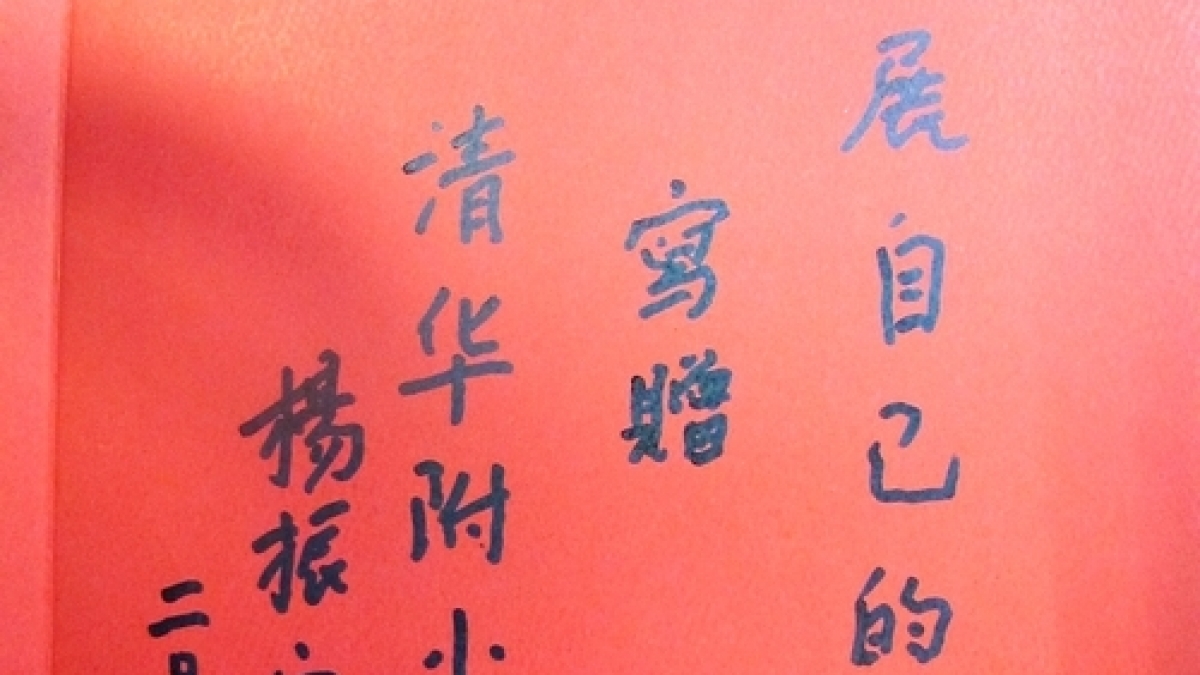 展自己的
寫贈
清华附小
楊振
二